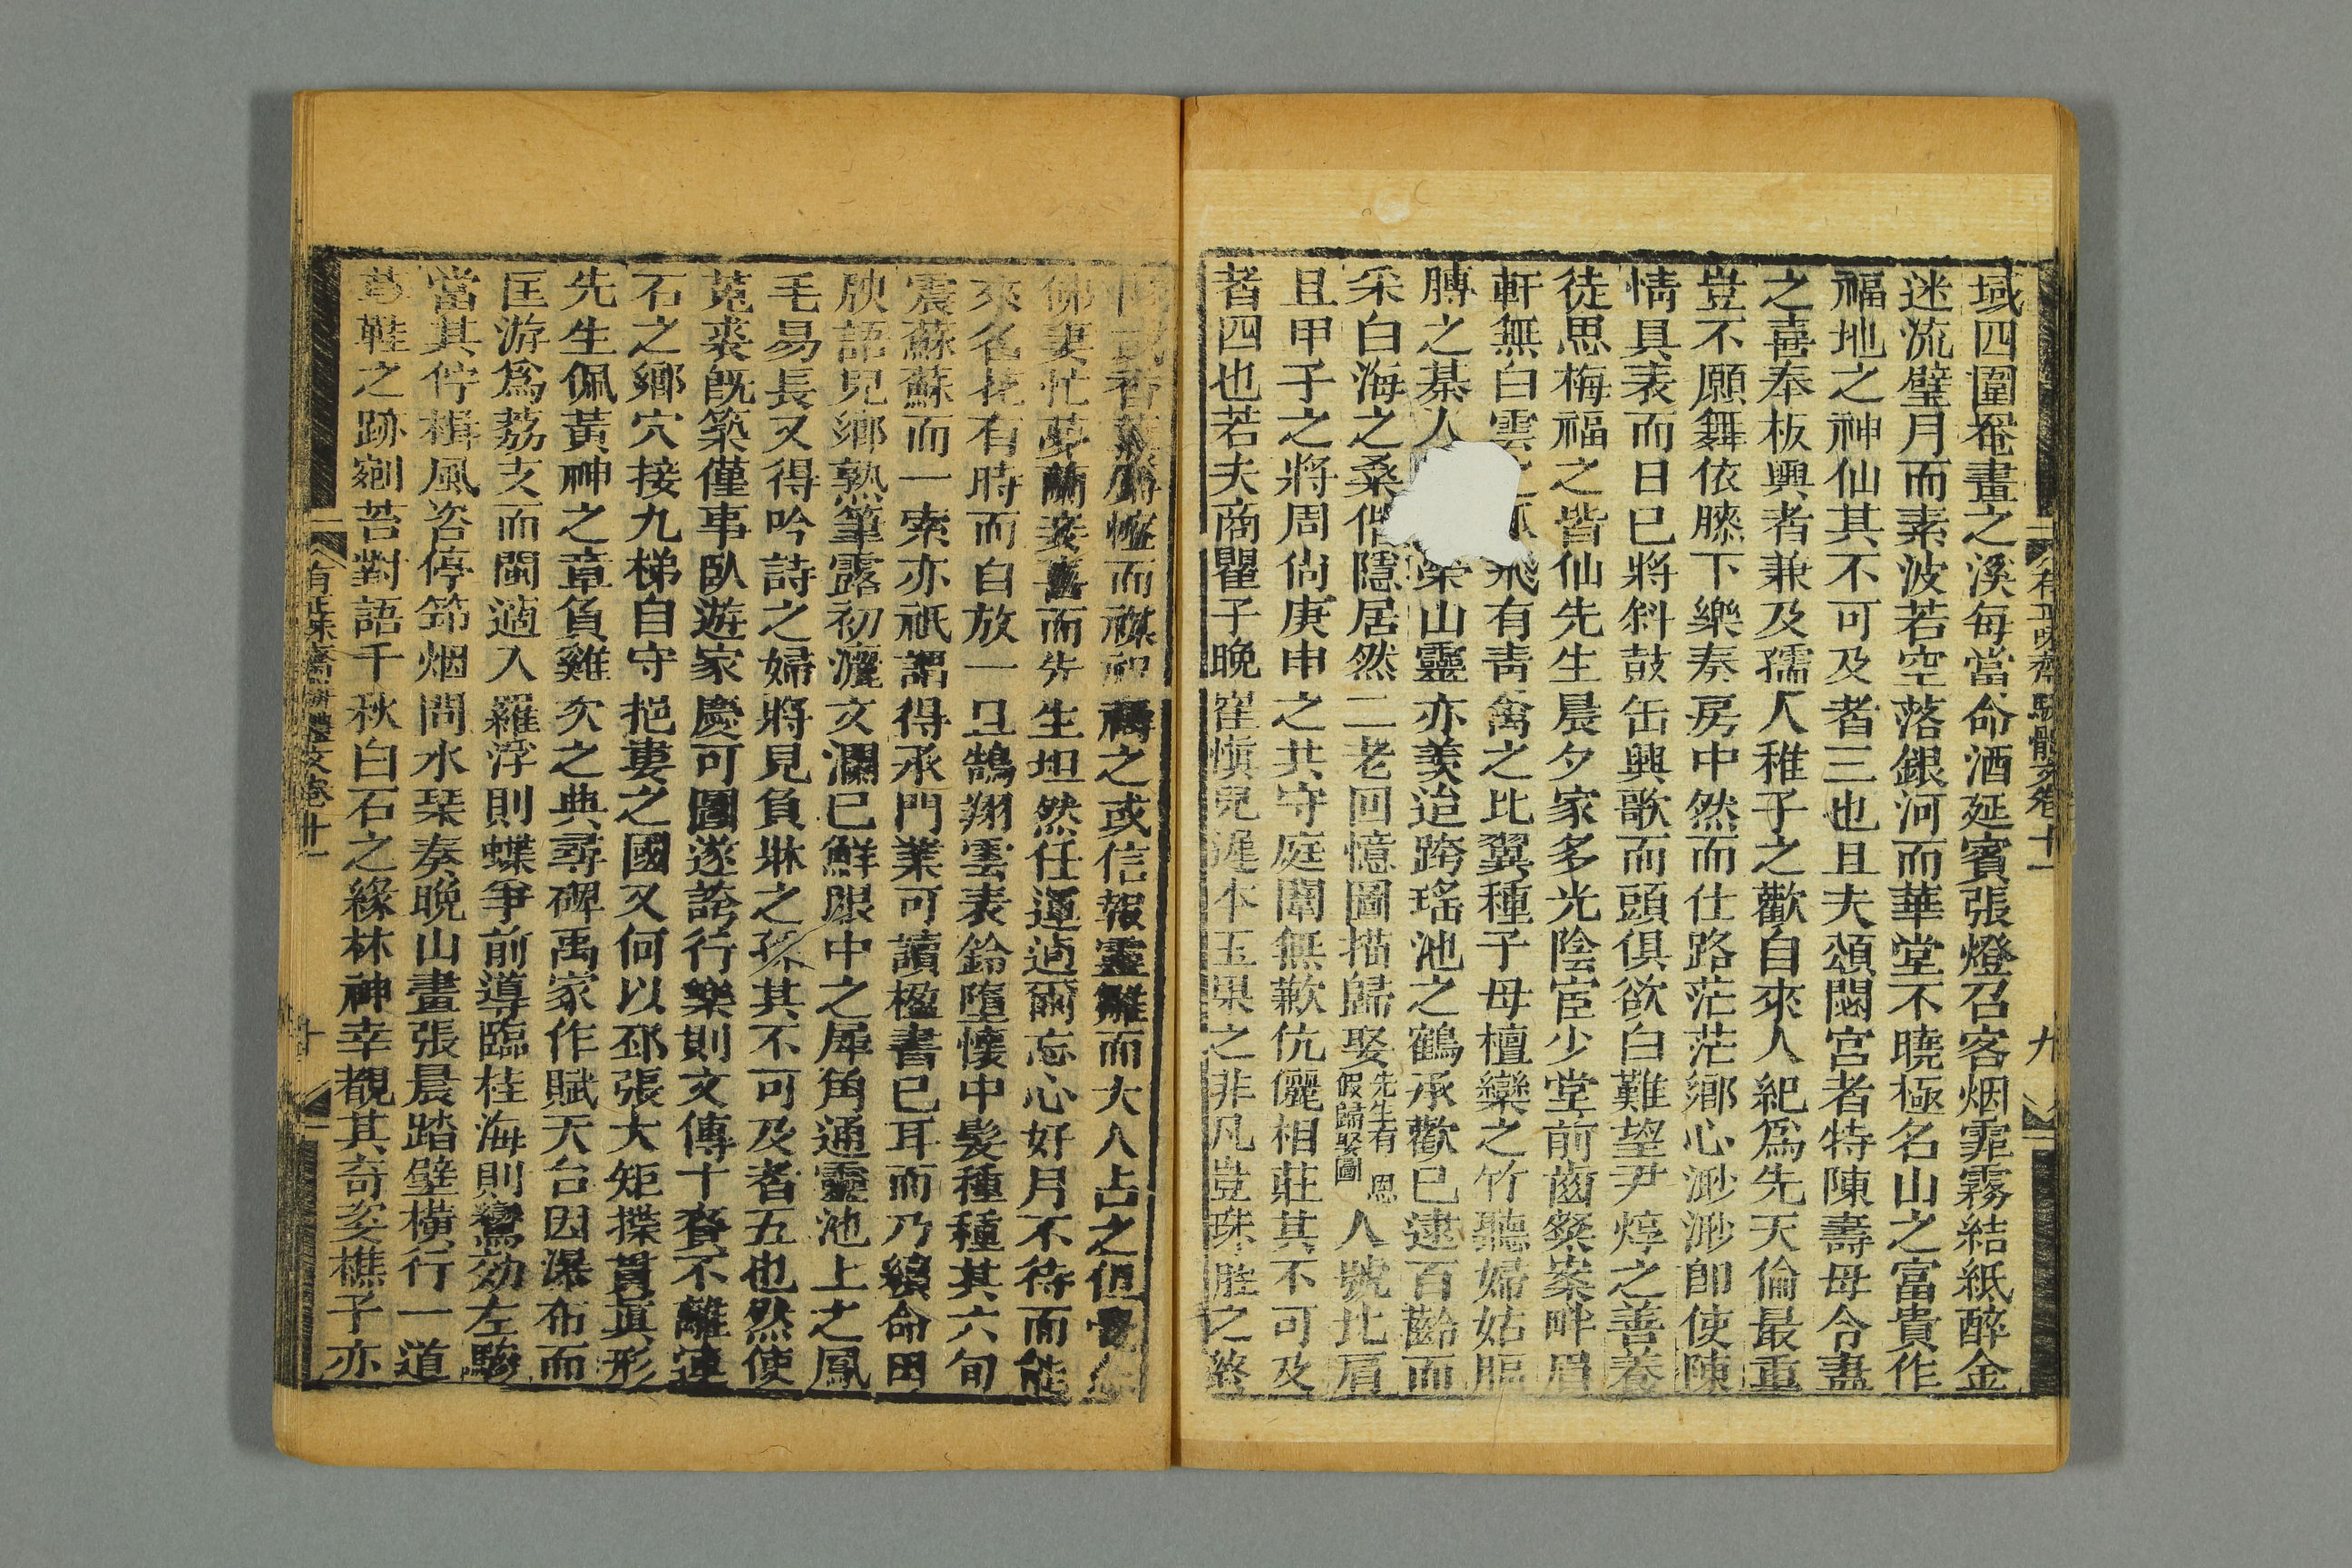 有正味齋駢體文卷十一 九
域四圍罨畫之溪每當命酒延賓張燈召客烟霏霧結紙醉金
迷流璧月而素波若空落銀河而華堂不曉極名山之富貴作
福地之神仙其不可及者三也且夫頌閟宮者特陳壽母令妻
之喜奉板輿者兼及孺人稚子之歡自來人紀爲先天倫最重
豈不願舞依膝下樂奏房中然而仕路茫茫鄉心渺渺卽使陳
情具表而日已將斜鼓缶興歌而頭俱欲白難望尹焞之善養
徒思梅福之皆仙先生晨夕家多光陰宦少堂前齒粲案畔眉
軒無白雲之飛有青禽之比翼種子母檀欒之竹聽婦姑腷
膊之棊人山靈亦羨迨跨瑤池之鶴承歡已逮百齡而
采白海之桑偕隱居然二老回憶圖描歸娶先生有恩假歸娶圖人號比肩
且甲子之將周尙庚申之共守庭闈無歉伉儷相莊其不可及
者四也若夫商瞿子晚崔愼兒遲本玉果之非凡豈珠胎之終
而禖祀禱之或信報靈雛而大人占之但
佛妻忙蘭妾而先生坦然任運逌爾忘心好月不待而能
來名花有時而自放一旦鵠翔雲表鈴墮懷中髮種種其六旬
震蘇蘇而一索亦祇謂得承門業可讀楹書已耳而乃纘命田
腴語兒鄉熟筆露初灑文瀾已鮮眼中之犀角通靈池上之鳳
毛易長又得吟詩之婦將見負牀之孫其不可及者五也然使
菟裘旣築僅事臥遊家慶可圖遂誇行樂則文傳十賚不離連
石之鄉穴接九梯自守挹婁之國又何以丕張大矩揲貫眞形
先生佩黃神之章負雞次之典尋碑禹家作賦天台因瀑布而
匡游爲荔支而閩適入羅浮則蝶爭前導臨桂海則鸞効左驂
當其佇楫風咨停笻烟問水琹奏晚山畫張晨踏壁橫行一道
鞋之跡剜苔對語千秋白石之緣林神幸覩其奇姿樵子亦
有正味齋駢體文卷十一 十